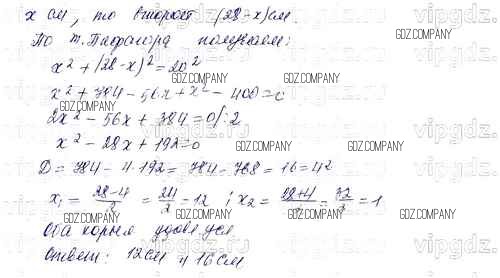 x см, то второй (28-x) см.
По т. Пифагора получаем:
x² + (28-x)² = 20²
x² + 784 - 56x + x² - 400 = 0
2x² - 56x + 384 = 0 /: 2
x² - 28x + 192 = 0
D = 784 - 4·192 = 784 - 768 = 16 = 4²
x₁ = (28-4)/2 = 24/2 = 12 ; x₂ = (28+4)/2 = 32/2 = 1
Оба корня
Ответ: 12 см и 16 см
GDZ.COMPANY
vipgdz.com